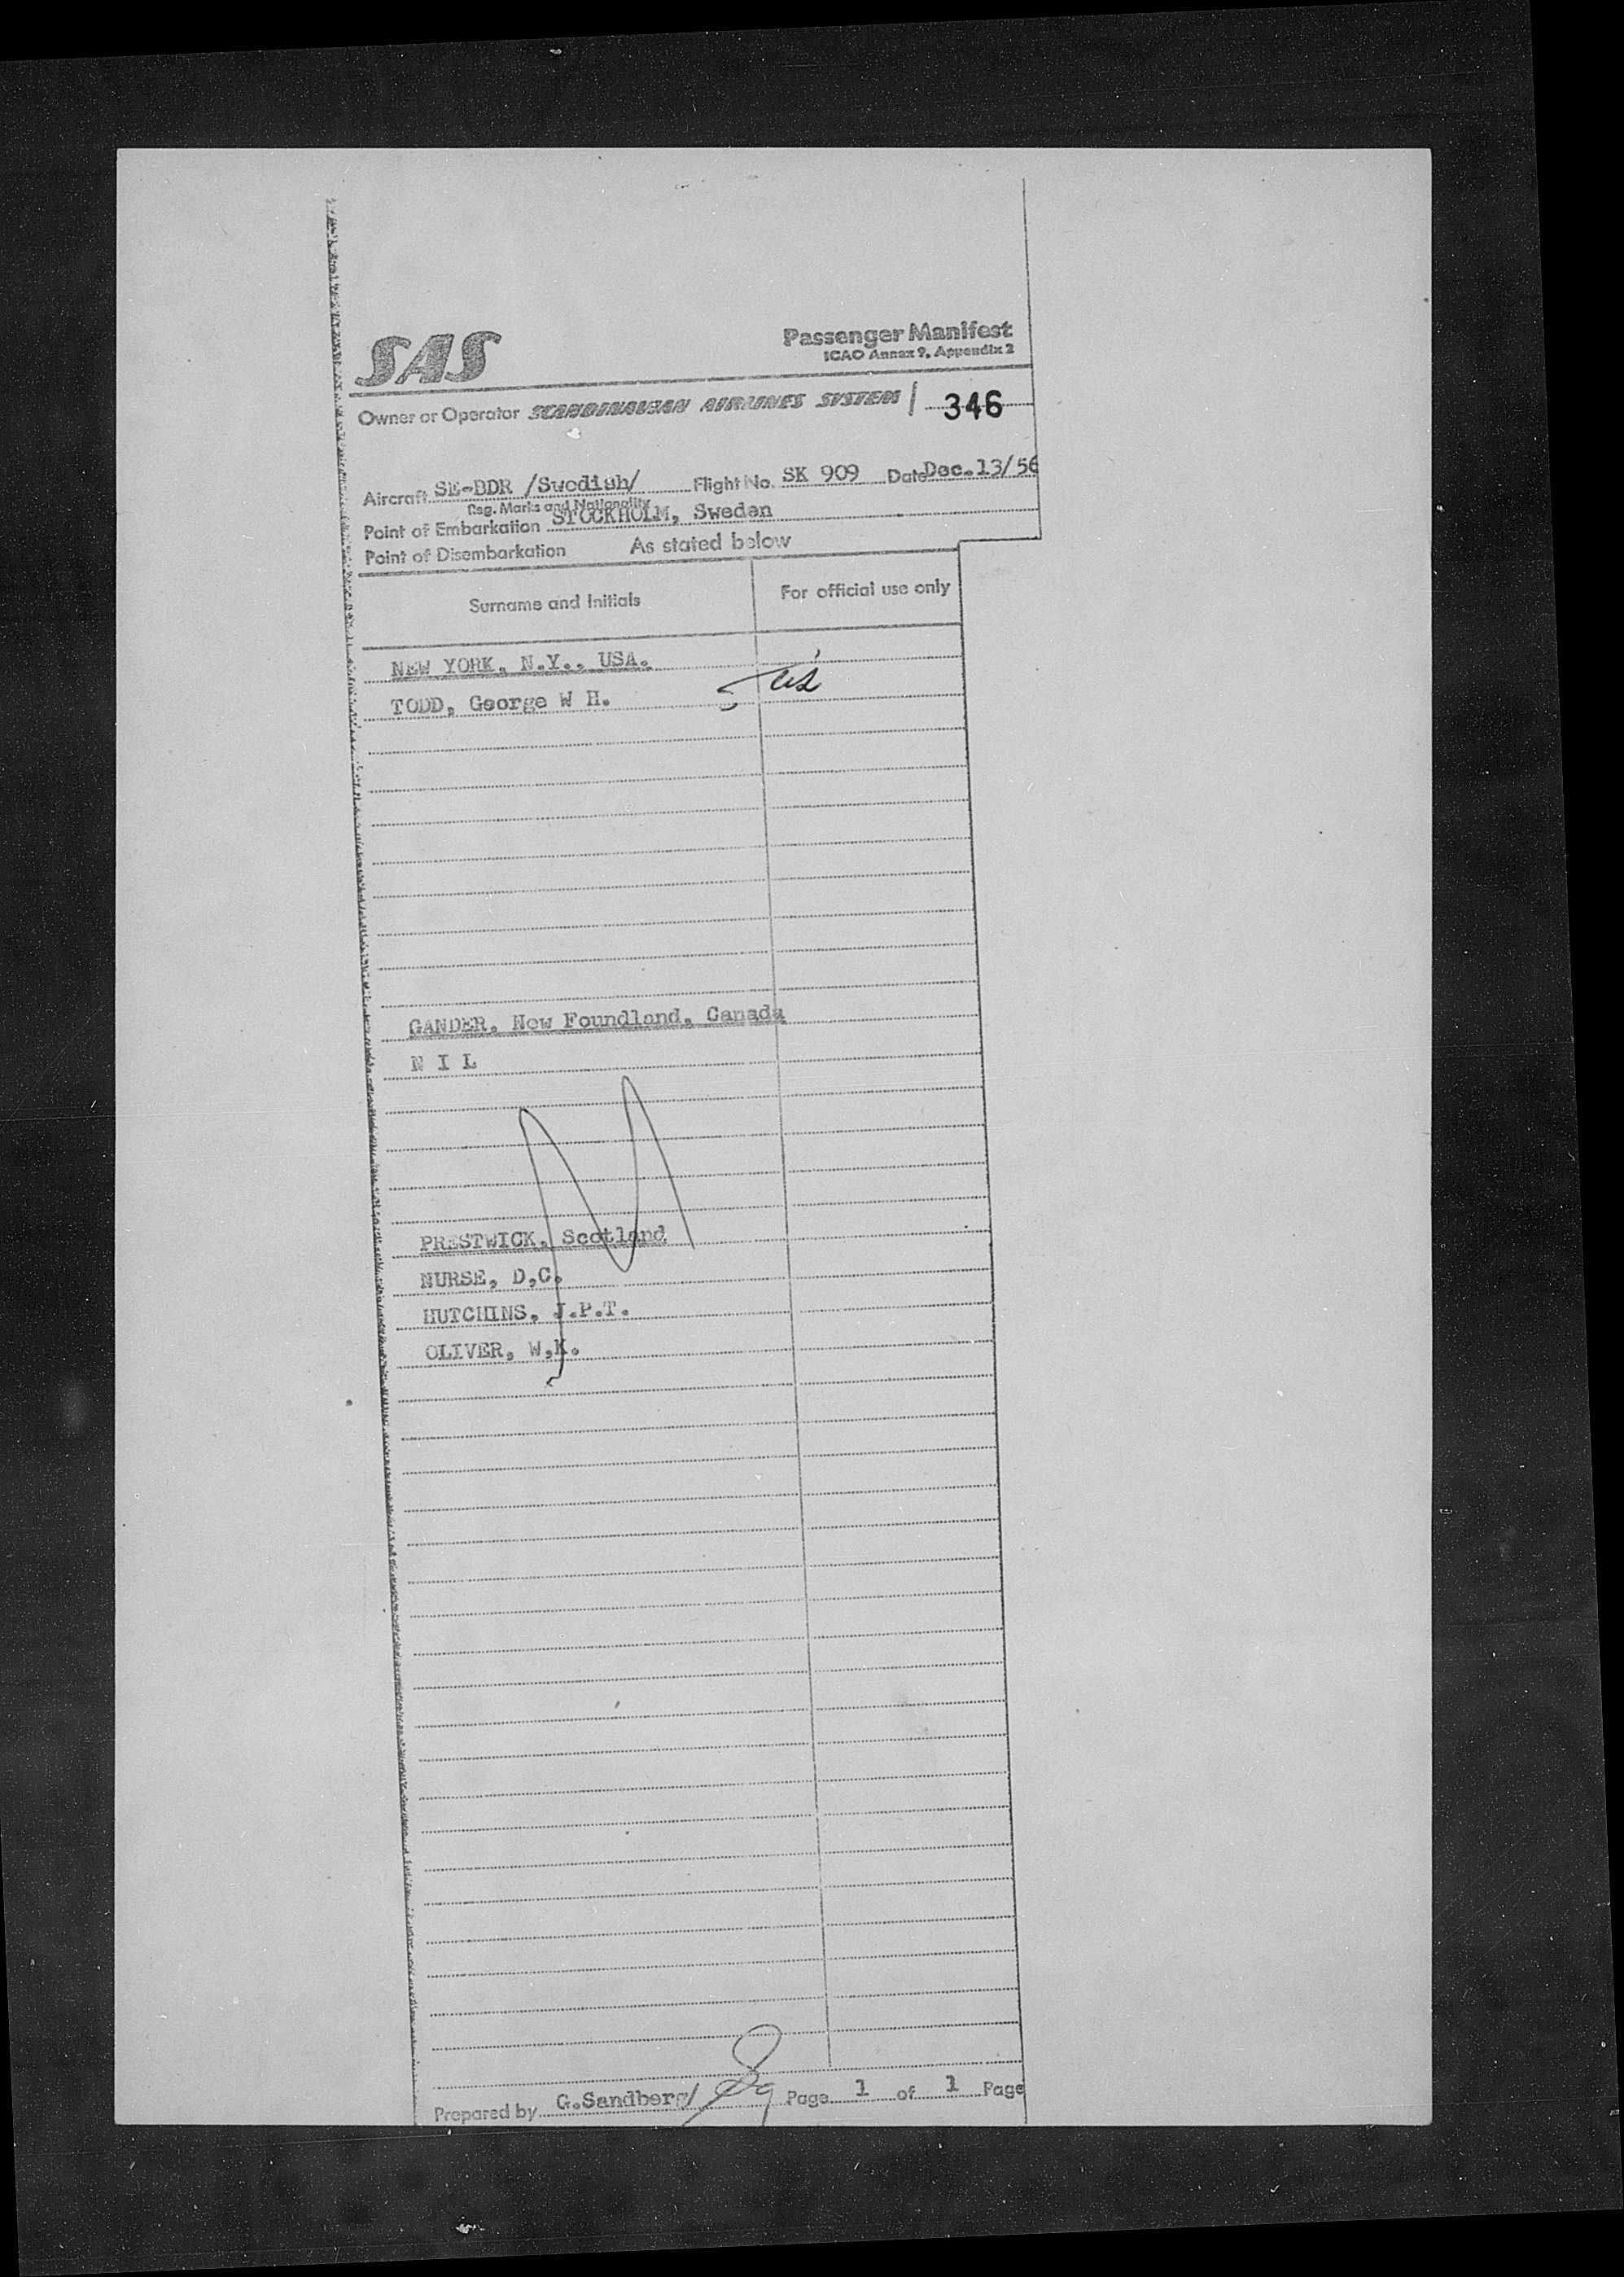 SAS
Passenger Manifest
ICAO Annex 9, Appendix 2
Owner or Operator SCANDINAVIAN AIRLINES SYSTEM 346
Aircraft SE-BDR /Swedish/ Flight No. SK 909 Date Dec.13/56
Reg. Marks and Nationality
Point of Embarkation STOCKHOLM, Sweden
Point of Disembarkation As stated below
Surname and Initials For official use only
NEW YORK, N.Y., USA.
TODD, George W H.
GANDER, New Foundland, Canada
N I L
PRESTWICK, Scotland
NURSE, D,C.
HUTCHINS, J.P.T.
OLIVER, W,K.
Prepared by G.Sandberg/ Page 1 of 1 Page